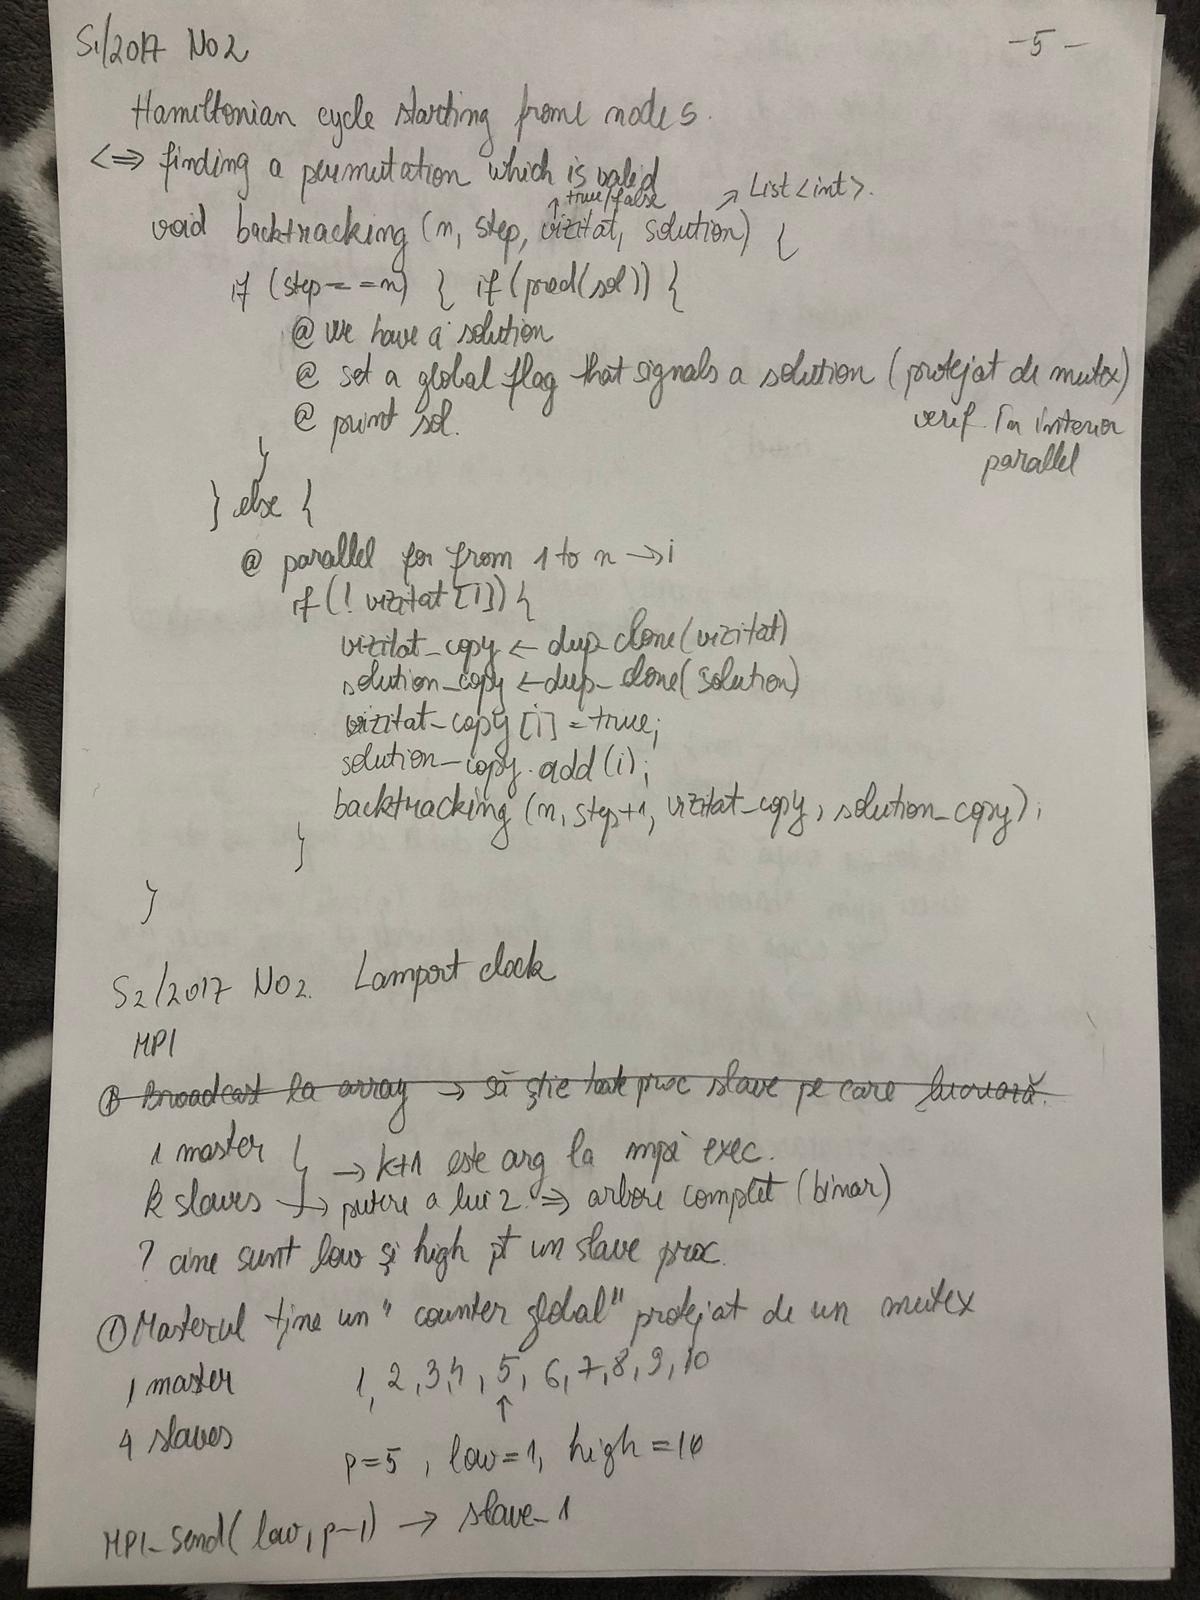 S1/2017 No2
-5-
Hamiltonian cycle starting frome node s.
<=> finding a permutation which is valid
↑ true/false
↗ List<int>.
void backtracking (n, step, vizitat, solution) {
if (step==n) { if (pred(sol)) {
@ we have a solution
@ set a global flag that signals a solution (protejat de mutex)
@ print sol.
verif în interior
parallel
}
} else {
@ parallel for from 1 to n → i
if (! vizitat [i]) {
vizitat_copy ← dup_clone(vizitat)
solution_copy ← dup_clone(solution)
vizitat_copy [i] = true;
solution_copy.add(i);
backtracking (n, step+1, vizitat_copy, solution_copy);
}
}
S2/2017 No2. Lamport clock
MPI
① Broadcast la array → să știe toate proc slave pe care lucrează.
1 master } → k+1 este arg la mpi exec.
k slaves → putere a lui 2. ⇒ arbore complet (binar)
? cine sunt low și high pt un slave proc.
① Masterul ține un "counter global" protejat de un mutex
1 master 1, 2, 3, 4, 5, 6, 7, 8, 9, 10
↑
4 slaves
p=5, low=1, high=10
MPI_Send( low, p-1) → slave_1